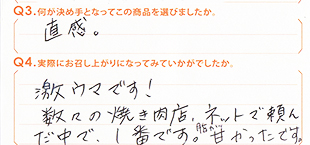 Q3.何が決め手となってこの商品を選びましたか。
直感。
Q4.実際にお召し上がりになってみていかがでしたか。
激ウマです!
数々の焼き肉店、ネットで頼ん
だ中で、1番です。脂が甘かったです。